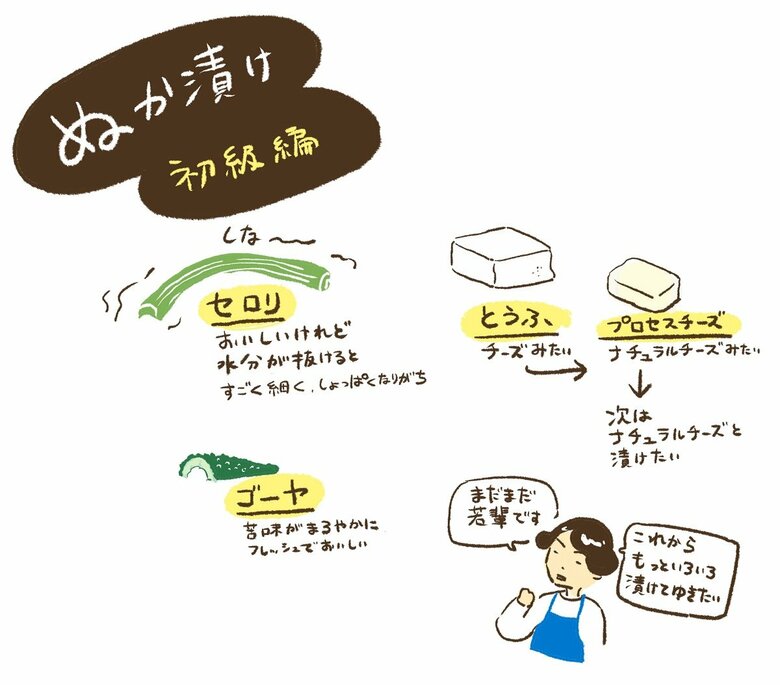 ぬか漬け
初級編
しな〜
セロリ
おいしいけれど
水分が抜けると
すごく細く、しょっぱくなりがち
とうふ
チーズみたい
プロセスチーズ
ナチュラルチーズみたい
次は
ナチュラルチーズと
漬けたい
ゴーヤ
苦味がまろやかに
フレッシュでおいしい
まだまだ
若輩です
これから
もっといろいろ
漬けてゆきたい